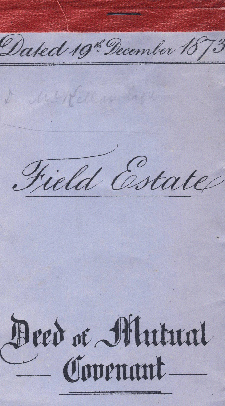 Dated 19th December 1873
Field Estate
Deed of Mutual
Covenant